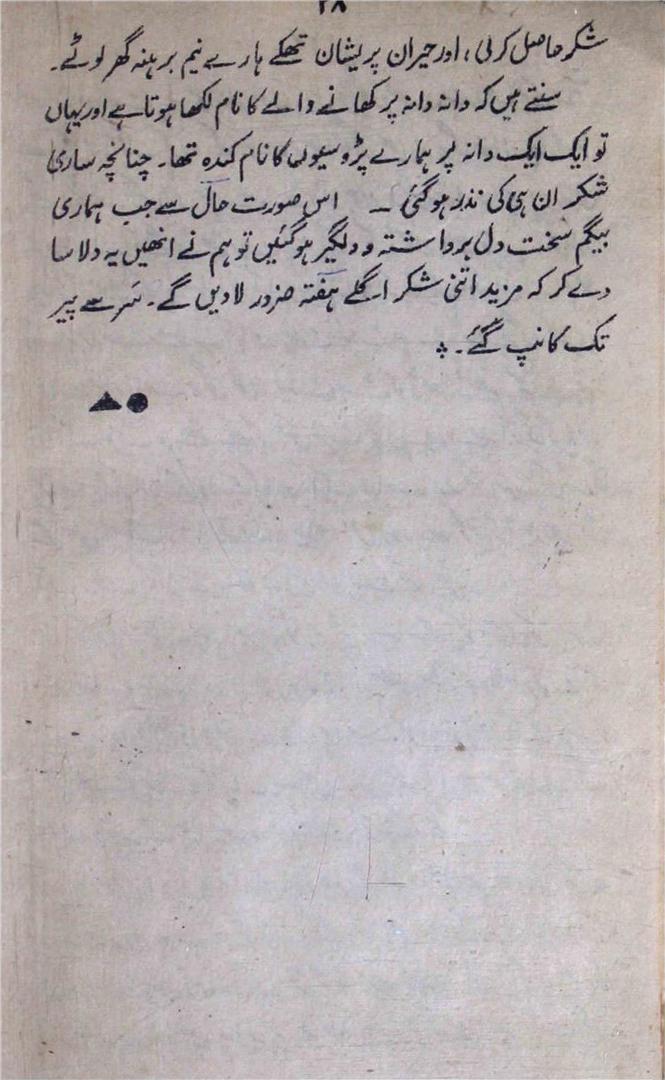 ۲۸
شکر حاصل کرلی، اور حیران پریشان تھکے ہارے نیم برہنہ گھر لوٹے۔
سنتے ہیں کہ دانہ دانہ پر کھانے والے کا نام لکھا ہوتا ہے اور یہاں
تو ایک ایک دانہ پر ہمارے پڑوسیوں کا نام کندہ تھا۔ چنانچہ ساری
شکر ان ہی کی نذر ہوگئی ـ اس صورت حال سے جب ہماری
بیگم سخت دل برداشتہ و دلگیر ہوگئیں تو ہم نے انھیں یہ دلاسا
دے کر کہ مزید اتنی شکر اگلے ہفتہ ضرور لادیں گے۔ سر سے پیر
تک کانپ گئے۔